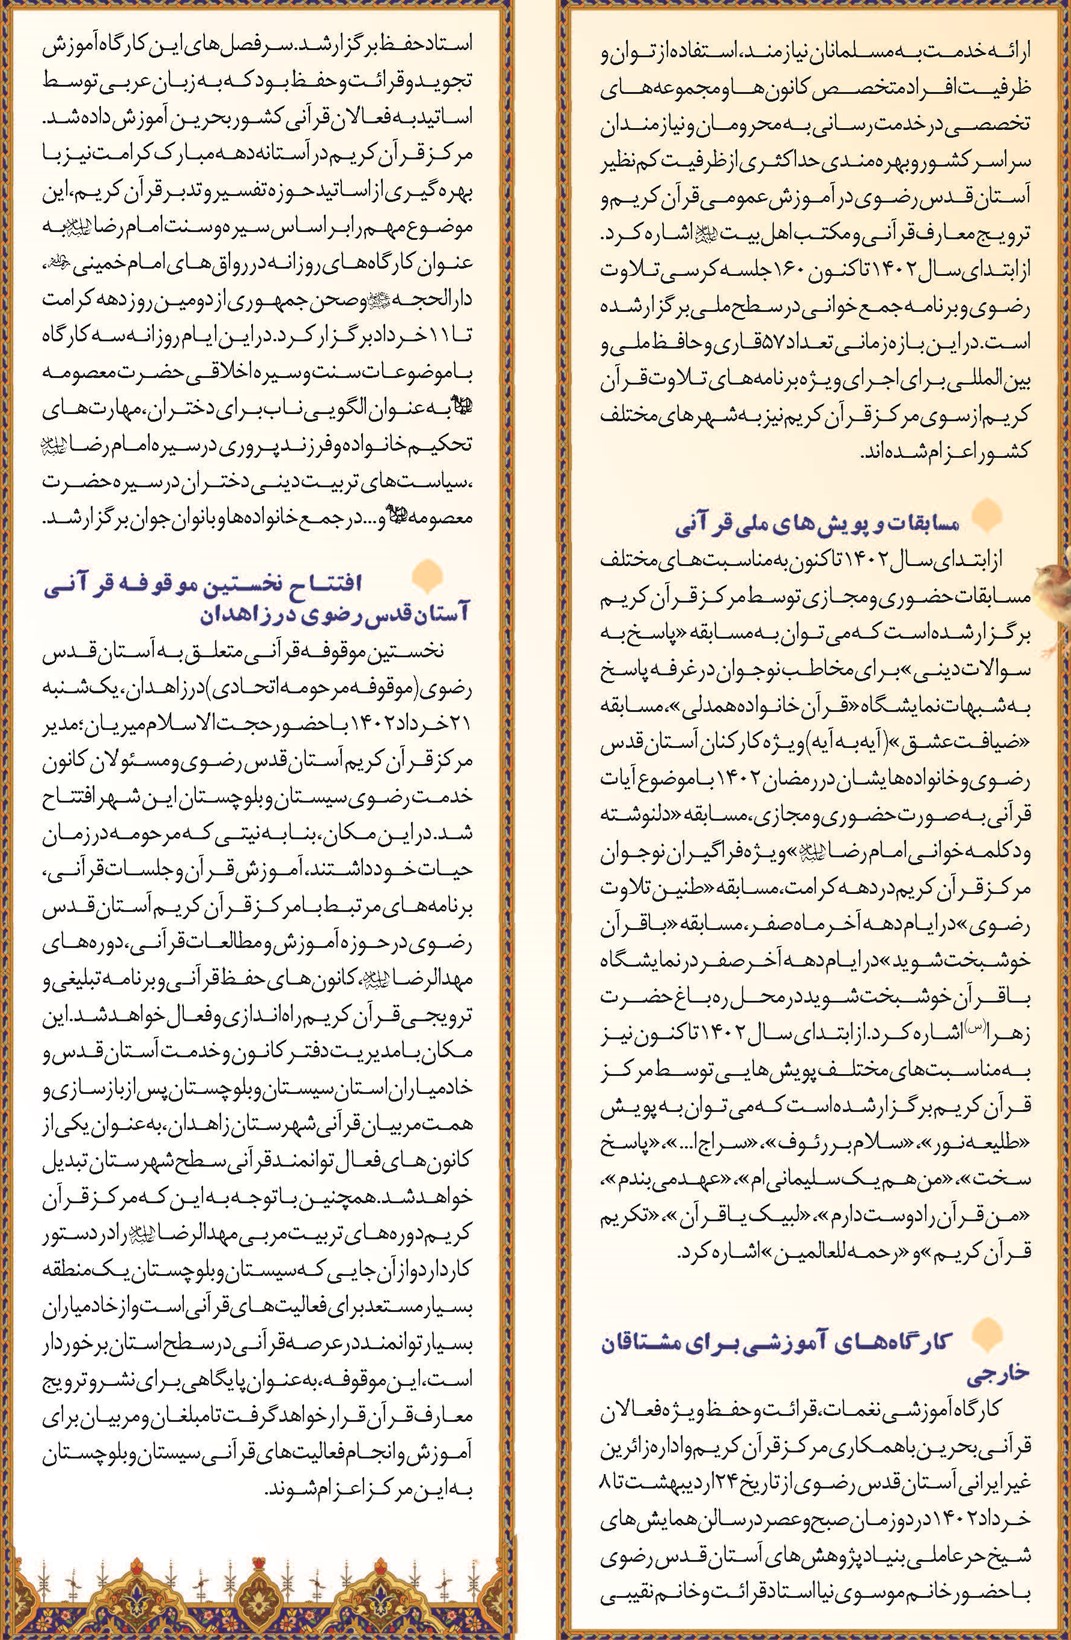 ارائه خدمت به مسلمانان نیازمند، استفاده از توان و
ظرفیت افراد متخصص کانون‌ها و مجموعه‌های
تخصصی در خدمت رسانی به محرومان و نیازمندان
سراسر کشور و بهره‌مندی حداکثری از ظرفیت کم‌نظیر
آستان قدس رضوی در آموزش عمومی قرآن کریم و
ترویج معارف قرآنی و مکتب اهل بیت علیهم السلام اشاره کرد.
از ابتدای سال ۱۴۰۲ تاکنون ۱۶۰ جلسه کرسی تلاوت
رضوی و برنامه جمع‌خوانی در سطح ملی برگزار شده
است. در این بازه زمانی تعداد ۵۷ قاری و حافظ ملی و
بین‌المللی برای اجرای ویژه برنامه‌های تلاوت قرآن
کریم از سوی مرکز قرآن کریم نیز به شهرهای مختلف
کشور اعزام شده‌اند.
مسابقات و پویش‌های ملی قرآنی
از ابتدای سال ۱۴۰۲ تاکنون به مناسبت‌های مختلف
مسابقات حضوری و مجازی توسط مرکز قرآن کریم
برگزار شده است که می‌توان به مسابقه «پاسخ به
سوالات دینی» برای مخاطب نوجوان در غرفه پاسخ
به شبهات نمایشگاه «قرآن خانواده همدلی»، مسابقه
«ضیافت عشق» (آیه به آیه) ویژه کارکنان آستان قدس
رضوی و خانواده‌هایشان در رمضان ۱۴۰۲ با موضوع آیات
قرآنی به صورت حضوری و مجازی، مسابقه «دلنوشته
و دکلمه خوانی امام رضا علیه السلام» ویژه فراگیران نوجوان
مرکز قرآن کریم در دهه کرامت، مسابقه «طنین تلاوت
رضوی» در ایام دهه آخر ماه صفر، مسابقه «با قرآن
خوشبخت شوید» در ایام دهه آخر صفر در نمایشگاه
با قرآن خوشبخت شوید در محل ره باغ حضرت
زهرا(س) اشاره کرد. از ابتدای سال ۱۴۰۲ تاکنون نیز
به مناسبت‌های مختلف پویش‌هایی توسط مرکز
قرآن کریم برگزار شده است که می‌توان به پویش
«طلیعه نور»، «سلام بر رئوف»، «سراج ا...»، «پاسخ
سخت»، «من هم یک سلیمانی‌ام»، «عهد می‌بندم»،
«من قرآن را دوست دارم»، «لبیک یا قرآن»، «تکریم
قرآن کریم» و «رحمه للعالمین» اشاره کرد.
کارگاه‌های آموزشی برای مشتاقان
خارجی
کارگاه آموزشی نغمات، قرائت و حفظ ویژه فعالان
قرآنی بحرین با همکاری مرکز قرآن کریم و اداره زائرین
غیرایرانی آستان قدس رضوی از تاریخ ۲۴ اردیبهشت تا ۸
خرداد ۱۴۰۲ در دو زمان صبح و عصر در سالن همایش‌های
شیخ حر عاملی بنیاد پژوهش‌های آستان قدس رضوی
با حضور خانم موسوی نیا استاد قرائت و خانم نقیبی
استاد حفظ برگزار شد. سرفصل‌های این کارگاه آموزش
تجوید و قرائت و حفظ بود که به زبان عربی توسط
اساتید به فعالان قرآنی کشور بحرین آموزش داده شد.
مرکز قرآن کریم در آستانه دهه مبارک کرامت نیز با
بهره‌گیری از اساتید حوزه تفسیر و تدبر قرآن کریم، این
موضوع مهم را بر اساس سیره و سنت امام رضا علیه السلام به
عنوان کارگاه‌های روزانه در رواق‌های امام خمینی ره،
دارالحجه و صحن جمهوری از دومین روز دهه کرامت
تا ۱۱ خرداد برگزار کرد. در این ایام روزانه سه کارگاه
با موضوعات سنت و سیره اخلاقی حضرت معصومه
به عنوان الگویی ناب برای دختران، مهارت‌های
تحکیم خانواده و فرزندپروری در سیره امام رضا علیه السلام
، سیاست‌های تربیت دینی دختران در سیره حضرت
معصومه و... در جمع خانواده‌ها و بانوان جوان برگزار شد.
افتتاح نخستین موقوفه قرآنی
آستان قدس رضوی در زاهدان
نخستین موقوفه قرآنی متعلق به آستان قدس
رضوی (موقوفه مرحومه اتحادی) در زاهدان، یک‌شنبه
۲۱ خرداد ۱۴۰۲ با حضور حجت الاسلام میریان؛ مدیر
مرکز قرآن کریم آستان قدس رضوی و مسئولان کانون
خدمت رضوی سیستان و بلوچستان این شهر افتتاح
شد. در این مکان، بنا به نیتی که مرحومه در زمان
حیات خود داشتند، آموزش قرآن و جلسات قرآنی،
برنامه‌های مرتبط با مرکز قرآن کریم آستان قدس
رضوی در حوزه آموزش و مطالعات قرآنی، دوره‌های
مهدالرضا علیه السلام، کانون‌های حفظ قرآنی و برنامه تبلیغی و
ترویجی قرآن کریم راه‌اندازی و فعال خواهد شد. این
مکان با مدیریت دفتر کانون و خدمت آستان قدس و
خادمیاران استان سیستان و بلوچستان پس از بازسازی و
همت مربیان قرآنی شهرستان زاهدان، به عنوان یکی از
کانون‌های فعال توانمند قرآنی سطح شهرستان تبدیل
خواهد شد. همچنین با توجه به این که مرکز قرآن
کریم دوره‌های تربیت مربی مهدالرضا علیه السلام را در دستور
کار دارد و از آن جایی که سیستان و بلوچستان یک منطقه
بسیار مستعد برای فعالیت‌های قرآنی است و از خادمیاران
بسیار توانمند در عرصه قرآنی در سطح استان برخوردار
است، این موقوفه، به عنوان پایگاهی برای نشر و ترویج
معارف قرآن قرار خواهد گرفت تا مبلغان و مربیان برای
آموزش و انجام فعالیت‌های قرآنی سیستان و بلوچستان
به این مرکز اعزام شوند.